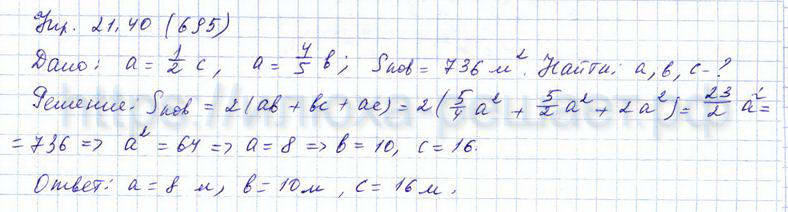 Упр. 21.40 (695)
Дано: a = 1/2 c, a = 4/5 b; Sпов = 736 м². Найти: a, b, c - ?
Решение: Sпов = 2(ab + bc + ac) = 2(5/4 a² + 5/2 a² + 2a²) = 23/2 a² =
= 736 => a² = 64 => a = 8 => b = 10, c = 16.
Ответ: a = 8 м, b = 10 м, c = 16 м.